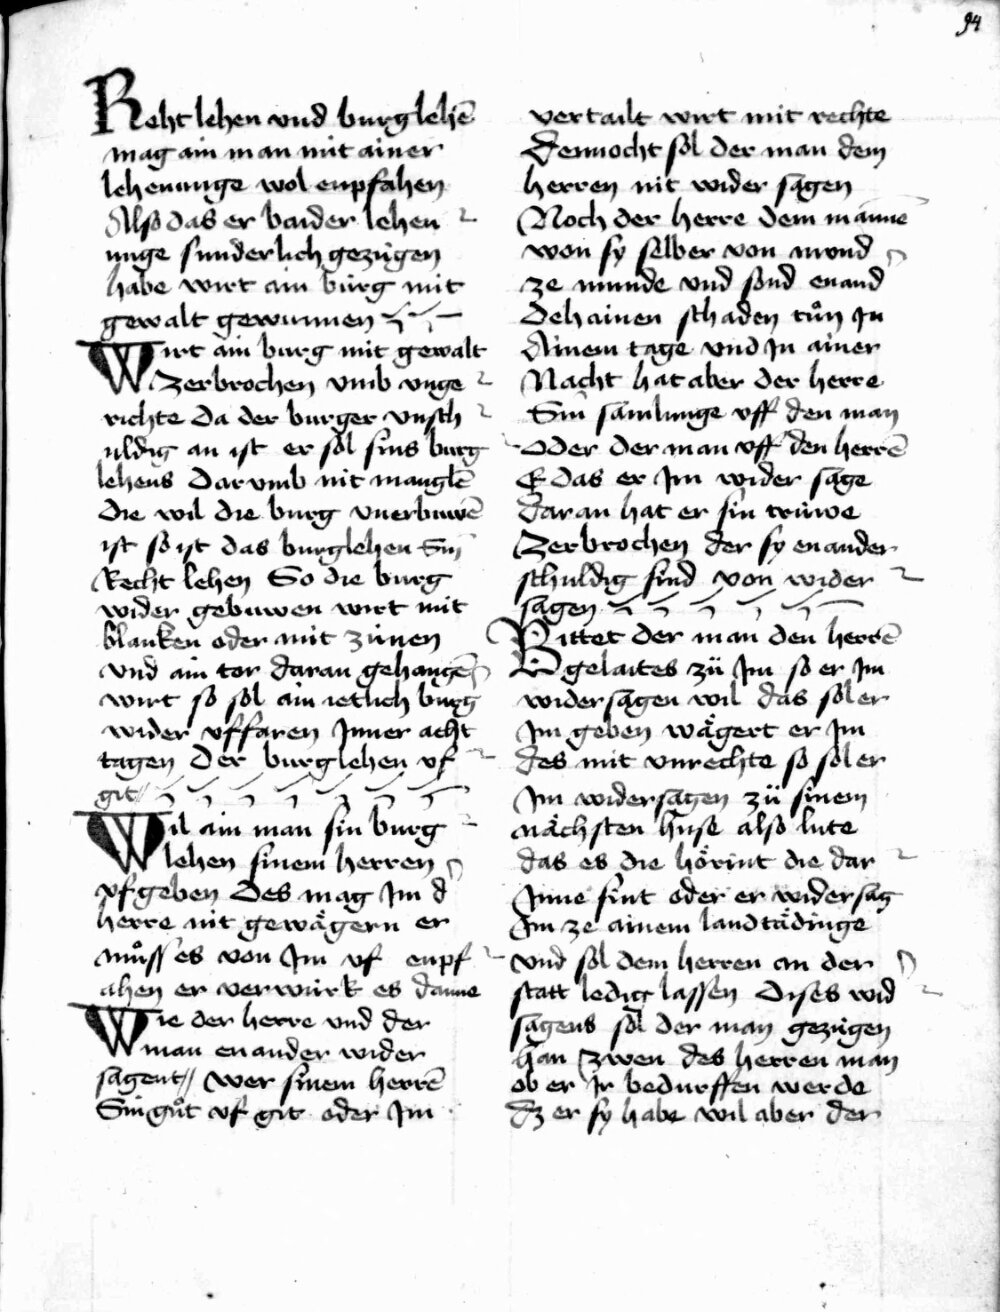 94
Reht lehen vnd burglehē
mag ain man mit ainer
lehenunge wol enpfahen
Also das er baider lehen
unge sunderlich gezügen
habe wirt ain burg mit
gewalt gewunnen
Wirt ain burg mit gewalt
Zerbrochen vmb vnge
richte da der burger vnsch
uldig an ist er sol sins burg
lehens darumb nit manglē
die wil die burg vnerbuwē
ist so ist das burglehen Sin
Recht lehen So die burg
wider gebuwen wirt mit
blanken oder mit zünen
vnd ain tor daran gehangē
wirt so sol ain ietlich burg
wider vffaren Inner acht
tagen Der burglehen vf
git
Wil ain man sin burg
lehen sinem herren
vfgeben Des mag Im d
herre nit gewägern er
můss es von Im vf enpf
ahen er verwürk es danne
Wie der herre vnd der
man enander wider
sagent Wer sinem herrē
Sin gůt vf git oder Im
vertailt wirt mit rechte
Dennocht sol der man dem
herren nit wider sagen
Noch der herre dem mānne
won sy selber von mund
ze munde vnd sond enand
Dehainen schaden tůn In
Ainem tage vnd In ainer
Nacht hat aber der herre
Sin samlunge vff den man
oder der man vff den herrē
E das er Im wider sage
daran hat er sin trüwe
Zerbrochen der sy enander
schuldig sind von wider
sagen
Bittet der man den herrē
gelaites zü Im so er Im
widersagen wil das sol er
Im geben wägert er Im
des mit vnrechte so sol er
Im widersagen zü sinem
nächsten huse also lute
das es die hörint die dar
Inne sint oder er widersag
Im ze ainem landtädinge
vnd sol dem herren an der
statt ledig lassen Dises wid
sagens sol der man gezügen
han zwen des herren man
ob er Ir bedurffen werde
dz er sy habe wil aber der